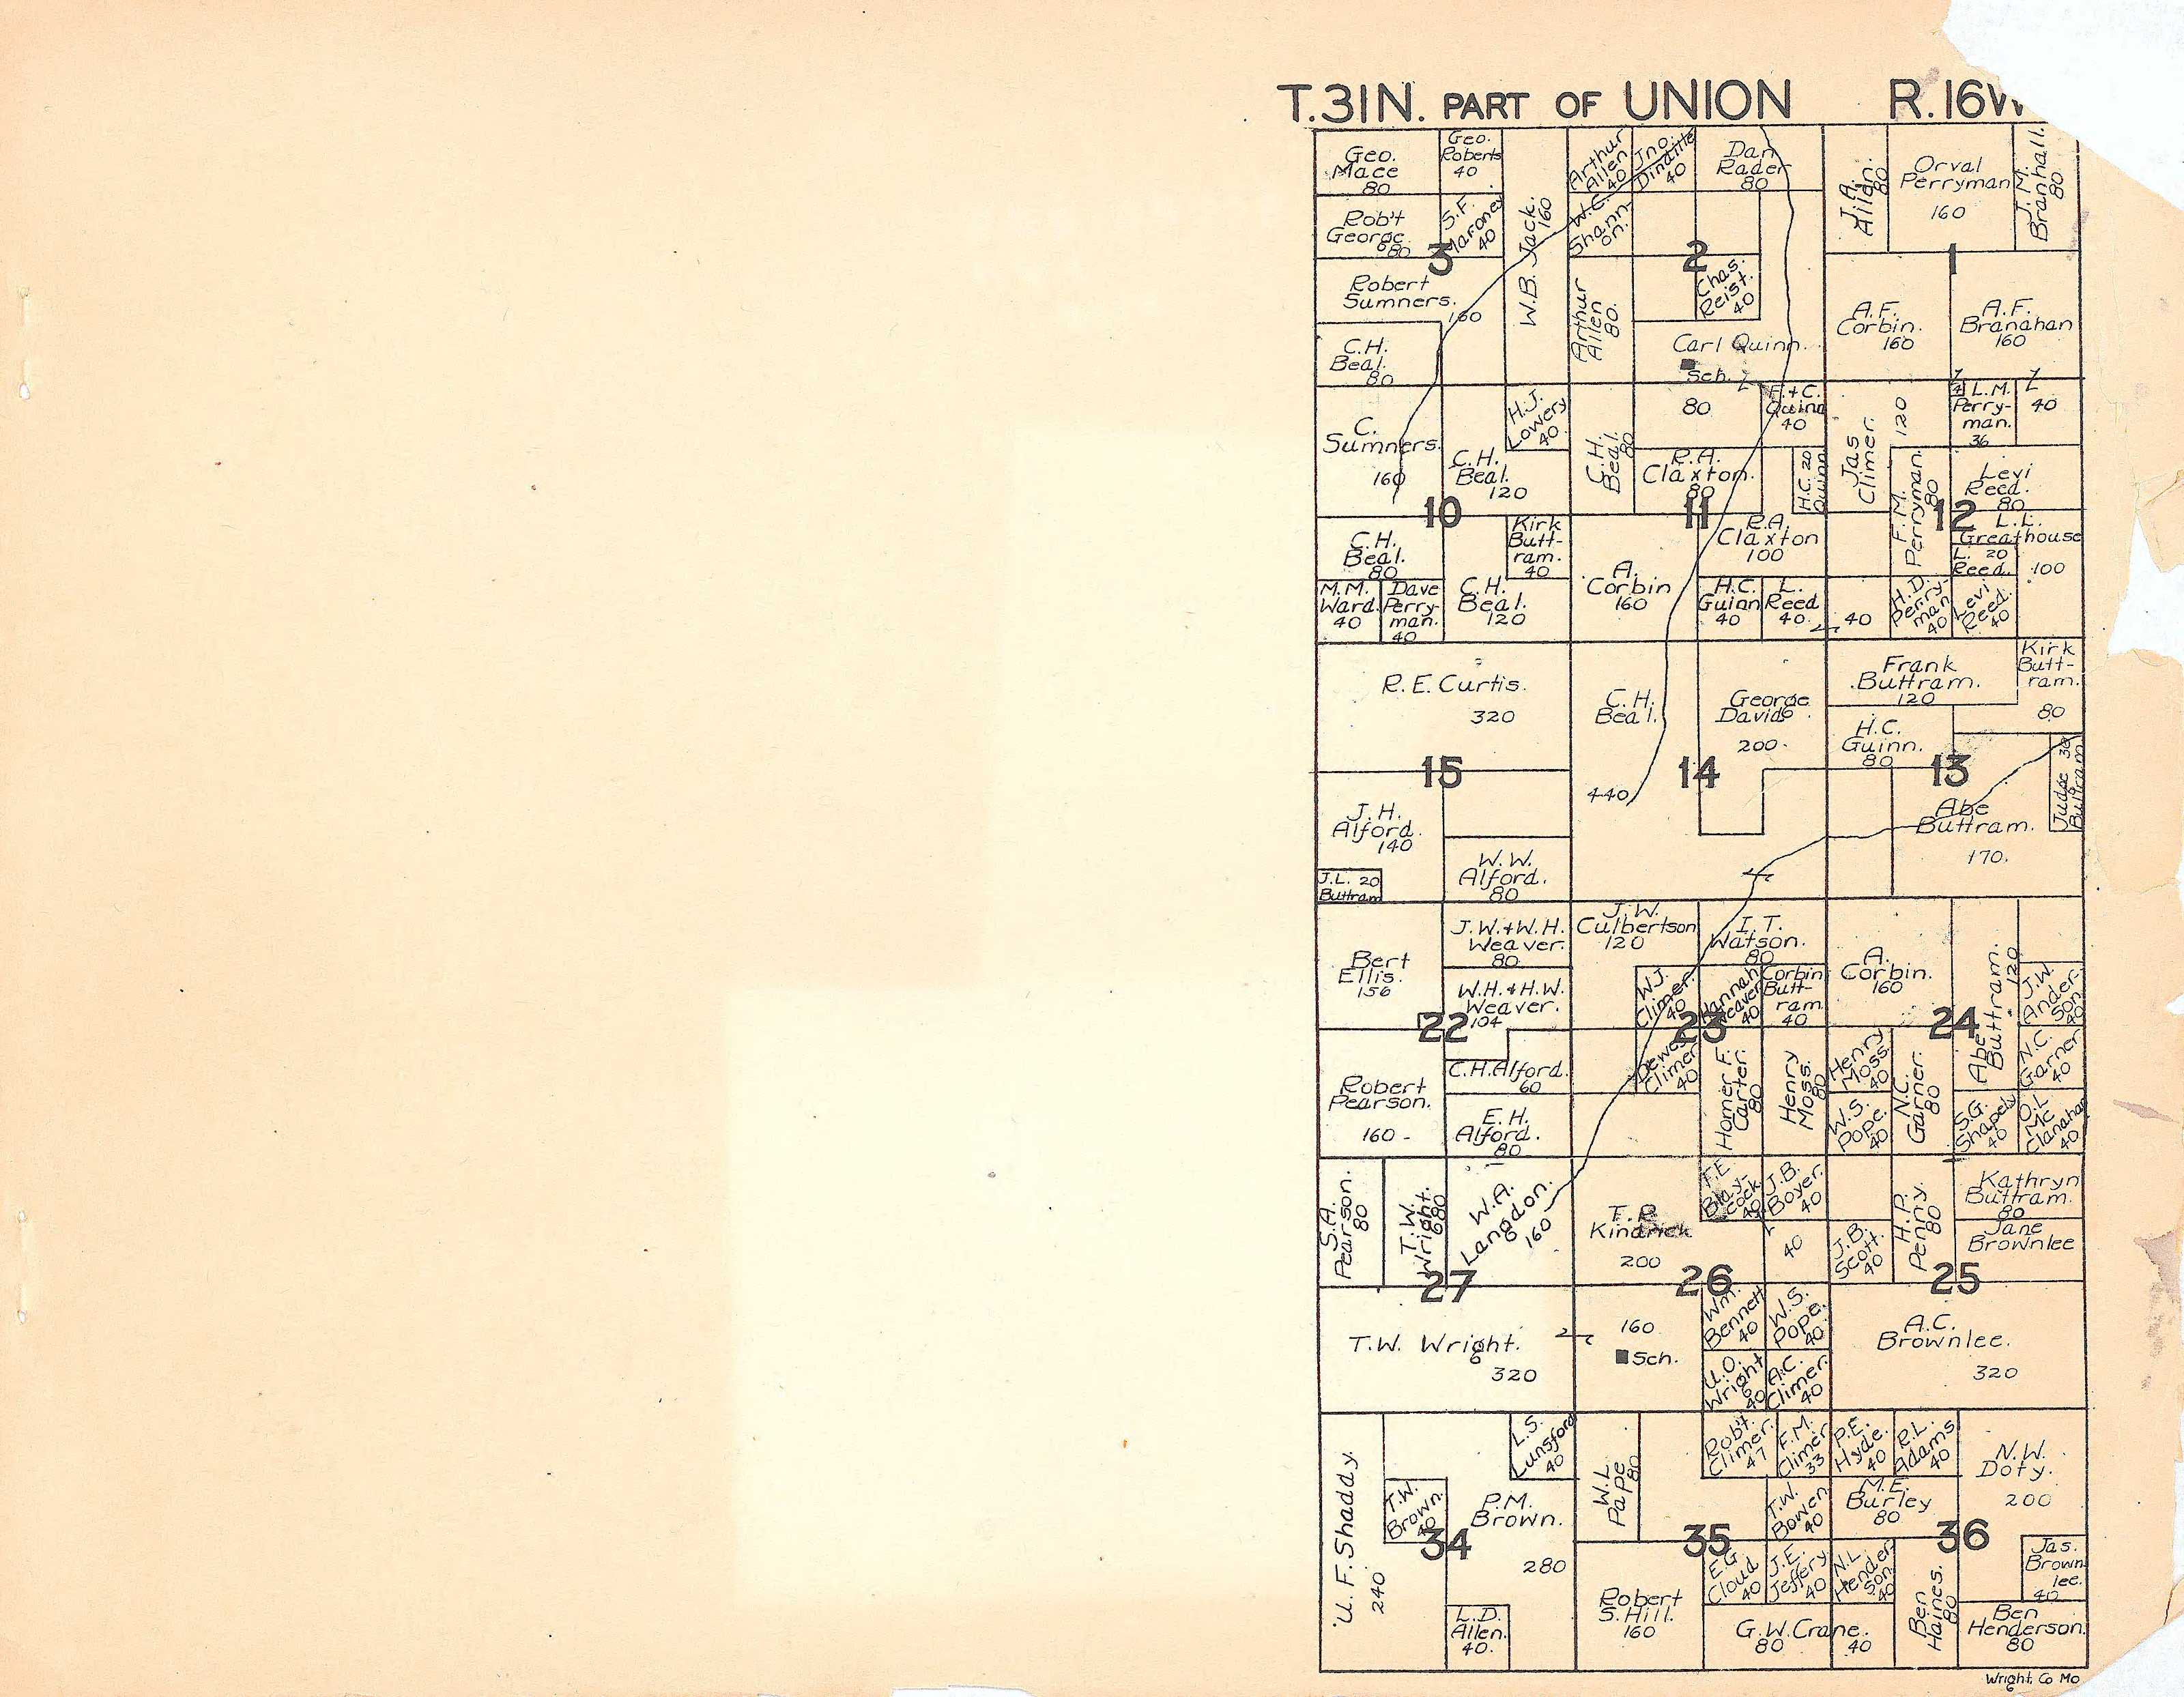 T.31N. PART OF UNION R.16W
Geo.
Mace
80
Geo.
Roberts
40
Rob't
George
80
S.F.
Maroney
40
3
Robert
Sumners.
160
C.H.
Beal.
80
W.B. Jack.
160
Arthur
Allen
40
Jno.
40
Dan
Rader
80
W.C.
Shann-
on.
2
Arthur
Allen
80.
Chas.
Reist.
40
Carl Quinn.
Sch.
J.A.
80
Orval
Perryman
160
J.M.
Branhall.
80
1
A.F.
Corbin.
160
A.F.
Branahan
160
C.
Sumners.
160
H.J.
Lowery
40
C.H.
Beal.
120
10
C.H.
Beal.
80
80
F.+C.
Quinn
40
R.A.
Claxton.
80
H.C. 20
Quinn
11
Jas
Climer.
120
F.M.
Perryman.
80
4
L.M.
Perry-
man.
36
40
Levi
Reed.
80
12
C.H.
Beal.
80
Kirk
Butt-
ram.
40
M.M.
Ward.
40
Dave
Perry-
man.
40
C.H.
Beal.
120
A.
Corbin
160
R.A.
Claxton
100
H.C.
Guinn
40
L.
Reed
40
40
H.D.
Perry-
man
40
L.L.
Greathouse
100
L. 20
Reed.
Levi
Reed.
40
R.E. Curtis.
320
15
C.H.
Beal.
440
George
Davids
200
14
Frank
Buttram.
120
Kirk
Butt-
ram.
80
H.C.
Guinn.
80
13
Judge 30
Buttram
Abe
Buttram.
170.
J.H.
Alford.
140
J.L. 20
Buttram
W.W.
Alford.
80
Bert
Ellis.
156
J.W.+W.H.
Weaver.
80
W.H.&H.W.
Weaver.
104
22
J.W.
Culbertson
120
I.T.
Watson.
80
W.J.
Climer.
40
Hannah
Weaver
40
Corbin
Butt-
ram
40
23
A.
Corbin.
160
Abe
Buttram.
120
J.W.
Ander-
son
40
24
Robert
Pearson.
160
C.H.Alford.
60
E.H.
Alford.
80
Dewey
Climer
40
Homer F.
Carter.
80
Henry
Moss.
80
Henry
Moss.
40
W.S.
Pope.
40
N.C.
Garner.
80
N.C.
Garner
40
S.G.
Shapely
40
O.L.
Mc
Clanahan
40
S.A.
Pearson.
80
T.W.
Wright.
80
W.A.
Langdon.
160
27
T.R.
Kindrick
200
T.E.
Blay-
cock
40
J.B.
Boyer.
40
40
26
J.B.
Scott.
40
H.P.
Penny.
80
Kathryn
Buttram.
80
Jane
Brownlee
25
T.W. Wright.
320
160
Sch.
Wm.
Bennett
40
W.S.
Pope.
40
U.O.
Wright
40
A.C.
Climer.
40
A.C.
Brownlee.
320
U.F.Shaddy.
240
T.W.
Brown.
40
L.S.
Lunsford
40
P.M.
Brown.
280
34
L.D.
Allen.
40.
W.L.
Pape
80
Rob't.
Climer.
47
F.M.
Climer
33
T.W.
Bowen
40
35
Robert
S.Hill.
160
E.G.
Cloud
40
J.E.
Jeffery
40
G.W.Crane.
80
40
P.E.
Hyde.
40
R.L.
Adams
40
N.W.
Doty.
200
M.E.
Burley
80
36
N.L.
Hender
son.
40
Ben
Haines.
80
Jas.
Brown
lee.
40
Ben
Henderson.
80
Wright. Co Mo